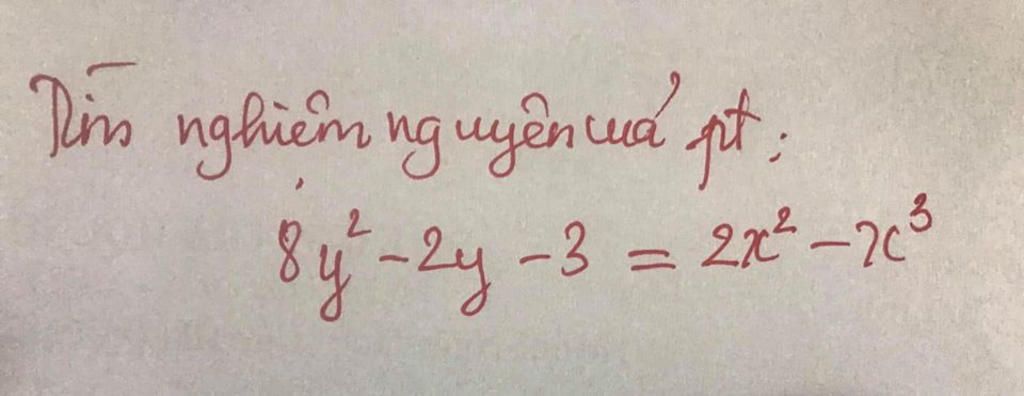 Tìm nghiêm nguyên cuả pt:
8y² - 2y - 3 = 2x² - x³